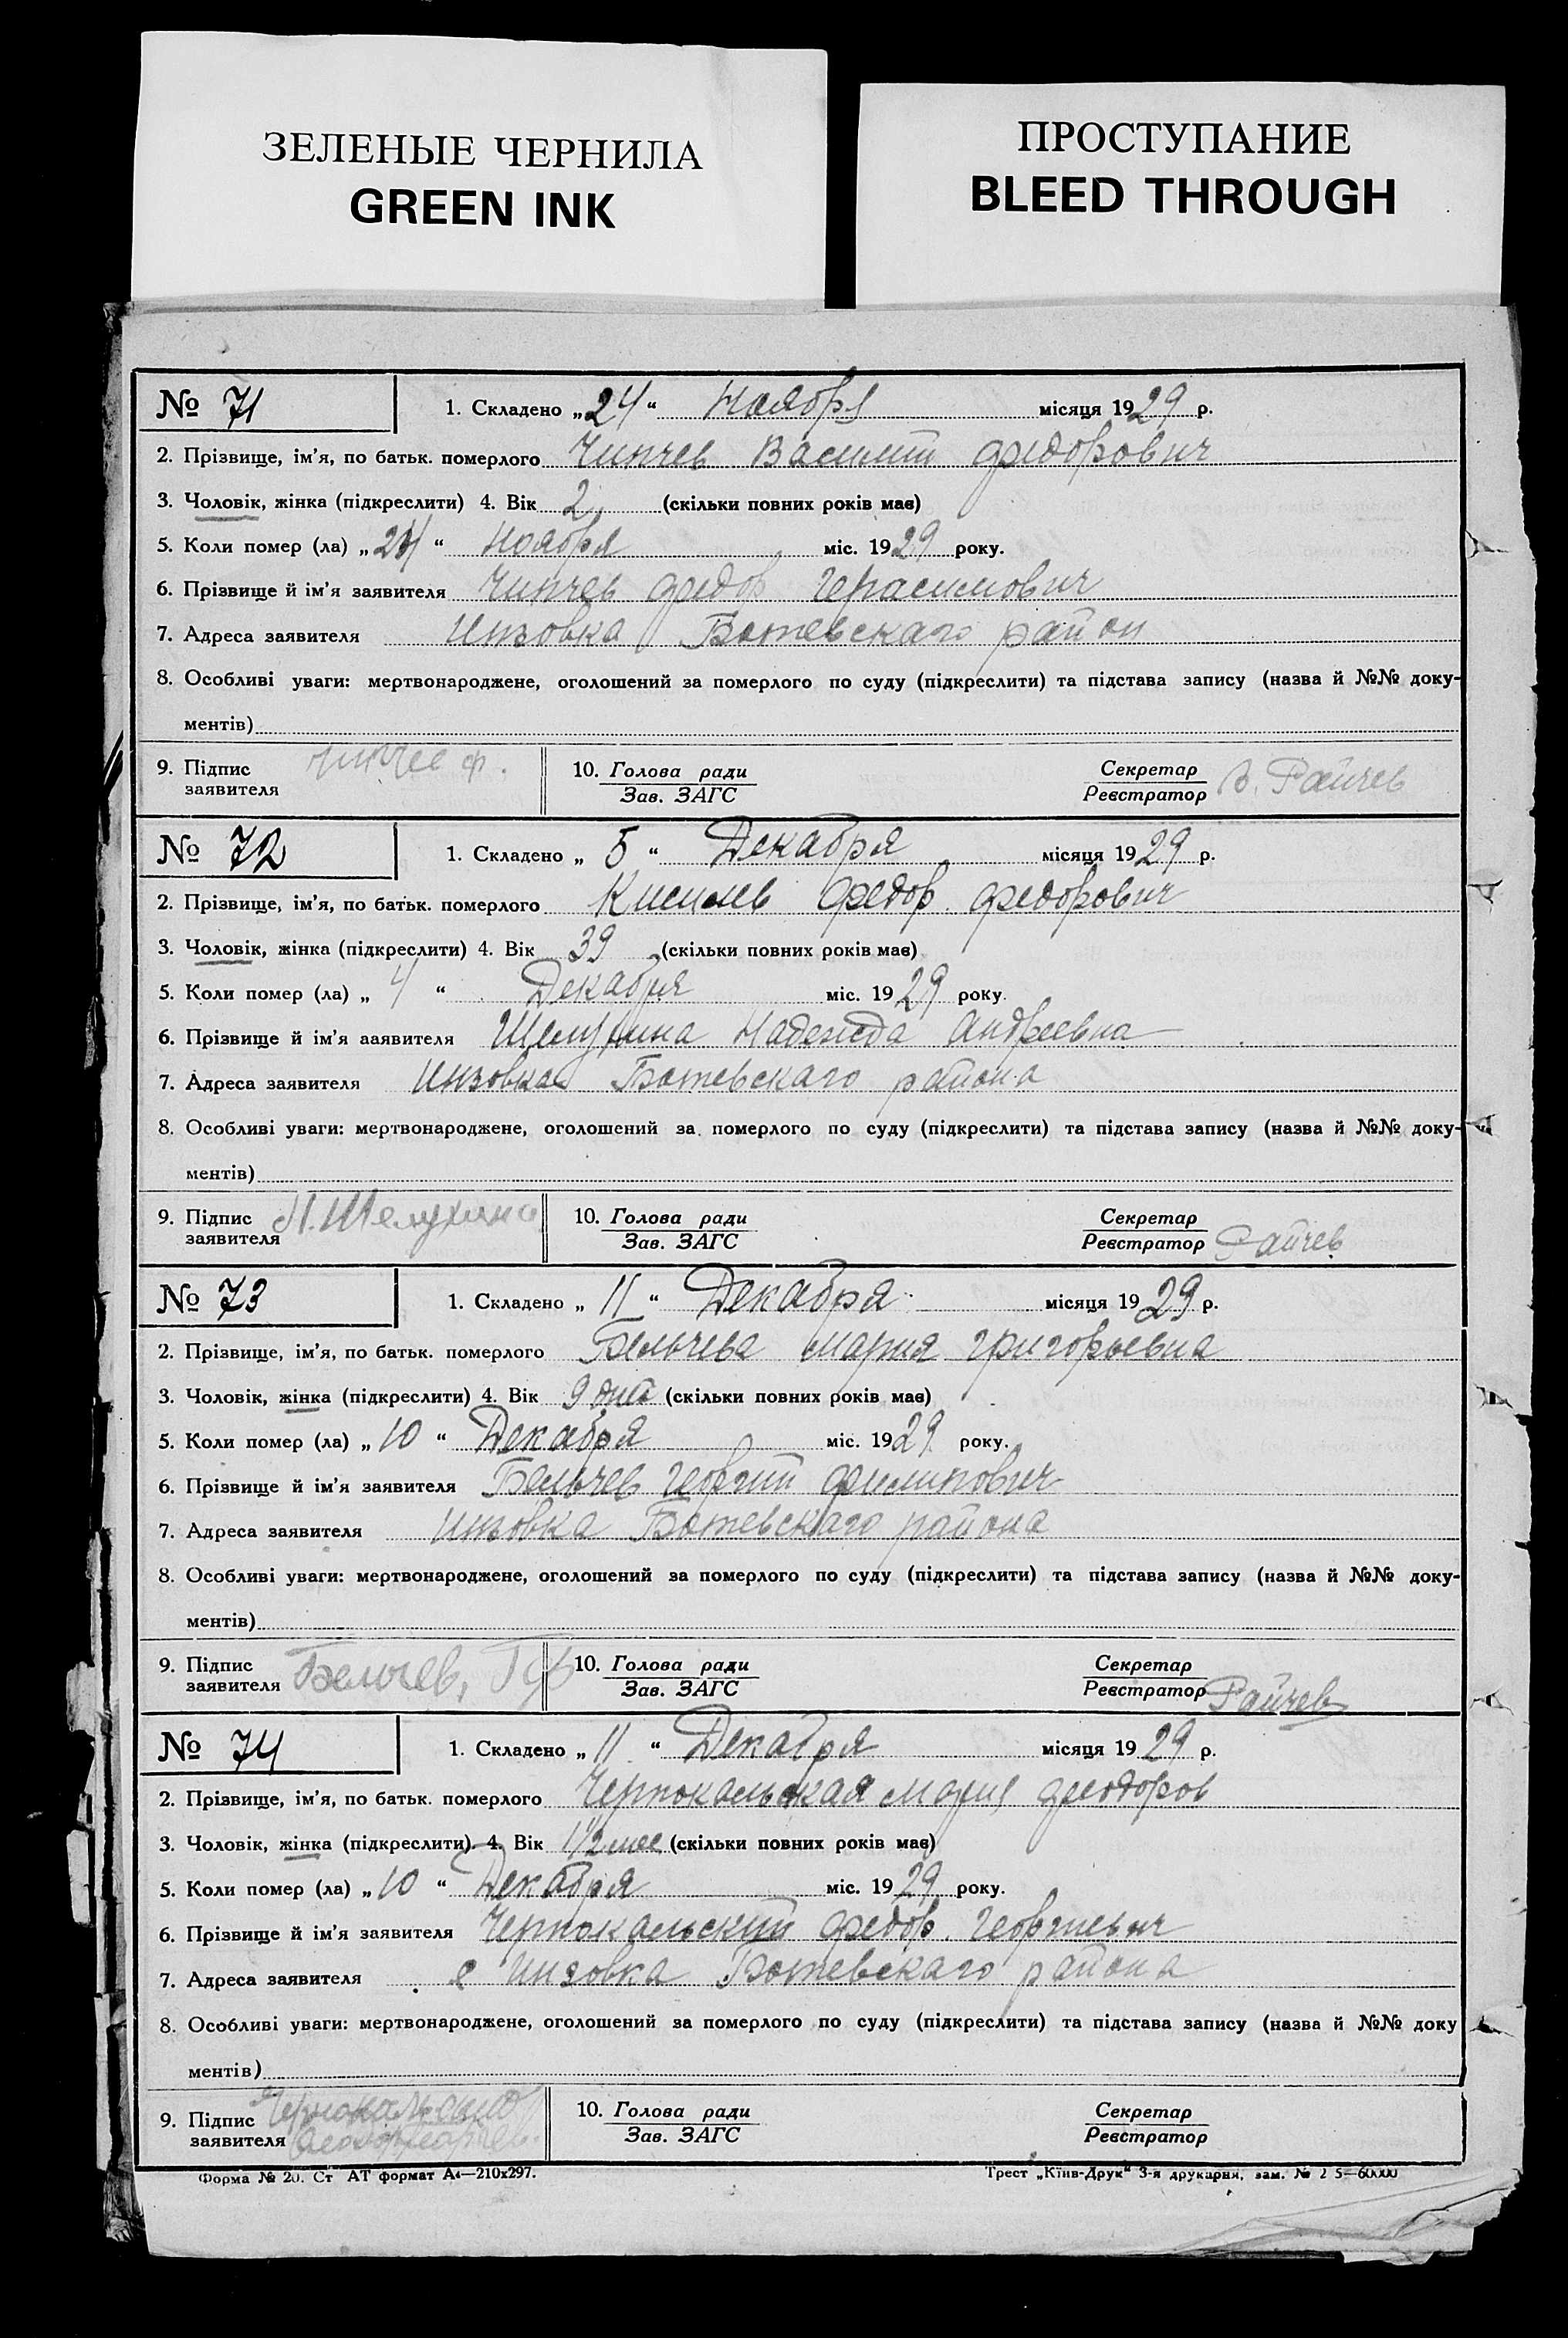 ЗЕЛЕНЫЕ ЧЕРНИЛА
GREEN INK
ПРОСТУПАНИЕ
BLEED THROUGH
№ 71 1. Складено „24“ Ноября місяця 1929 р.
2. Прізвище, ім'я, по батьк. померлого Чипчев Василий Федорович
3. Чоловік, жінка (підкреслити) 4. Вік 2 (скільки повних років має)
5. Коли помер (ла) „24“ Ноября міс. 1929 року.
6. Прізвище й ім'я заявителя Чипчев Федор Герасимович
7. Адреса заявителя Инзовка Ботевскаго район
8. Особливі уваги: мертвонароджене, оголошений за померлого по суду (підкреслити) та підстава запису (назва й №№ доку-
ментів)
9. Підпис заявителя Чипчев Ф. 10. Голова ради Секретар
Зав. ЗАГС Реєстратор В. Райчев
№ 72 1. Складено „5“ Декабря місяця 1929 р.
2. Прізвище, ім'я, по батьк. померлого Кисилев Федор Федорович
3. Чоловік, жінка (підкреслити) 4. Вік 39 (скільки повних років має)
5. Коли помер (ла) „4“ Декабря міс. 1929 року.
6. Прізвище й ім'я ааявителя Шелухина Надежда Андреевна
7. Адреса заявителя Инзовка Ботевскаго района
8. Особливі уваги: мертвонароджене, оголошений за померлого по суду (підкреслити) та підстава запису (назва й №№ доку-
ментів)
9. Підпис заявителя Н. Шелухина 10. Голова ради Секретар
Зав. ЗАГС Реєстратор Райчев
№ 73 1. Складено „11“ Декабря місяця 1929 р.
2. Прізвище, ім'я, по батьк. померлого Бельчева Мария Григорьевна
3. Чоловік, жінка (підкреслити) 4. Вік 9 дней (скільки повних років має)
5. Коли помер (ла) „10“ Декабря міс. 1929 року.
6. Прізвище й ім'я заявителя Бельчев Георгий Филипович
7. Адреса заявителя Инзовка Ботевскаго района
8. Особливі уваги: мертвонароджене, оголошений за померлого по суду (підкреслити) та підстава запису (назва й №№ доку-
ментів)
9. Підпис заявителя Бельчев, Г Ф 10. Голова ради Секретар
Зав. ЗАГС Реєстратор Райчев
№ 74 1. Складено „11“ Декабря місяця 1929 р.
2. Прізвище, ім'я, по батьк. померлого Чернокальская Мария Феодоров
3. Чоловік, жінка (підкреслити) 4. Вік 1 1/2 мес (скільки повних років має)
5. Коли помер (ла) „10“ Декабря міс. 1929 року.
6. Прізвище й ім'я заявителя Чернокальский Федор Георгиевич
7. Адреса заявителя с Инзовка Ботевскаго района
8. Особливі уваги: мертвонароджене, оголошений за померлого по суду (підкреслити) та підстава запису (назва й №№ доку
ментів)
9. Підпис заявителя 10. Голова ради Секретар
Зав. ЗАГС Реєстратор
Форма № 20. Ст АТ формат А4—210x297. Трест „Київ-Друк“ 3-я друкарня, зам. №